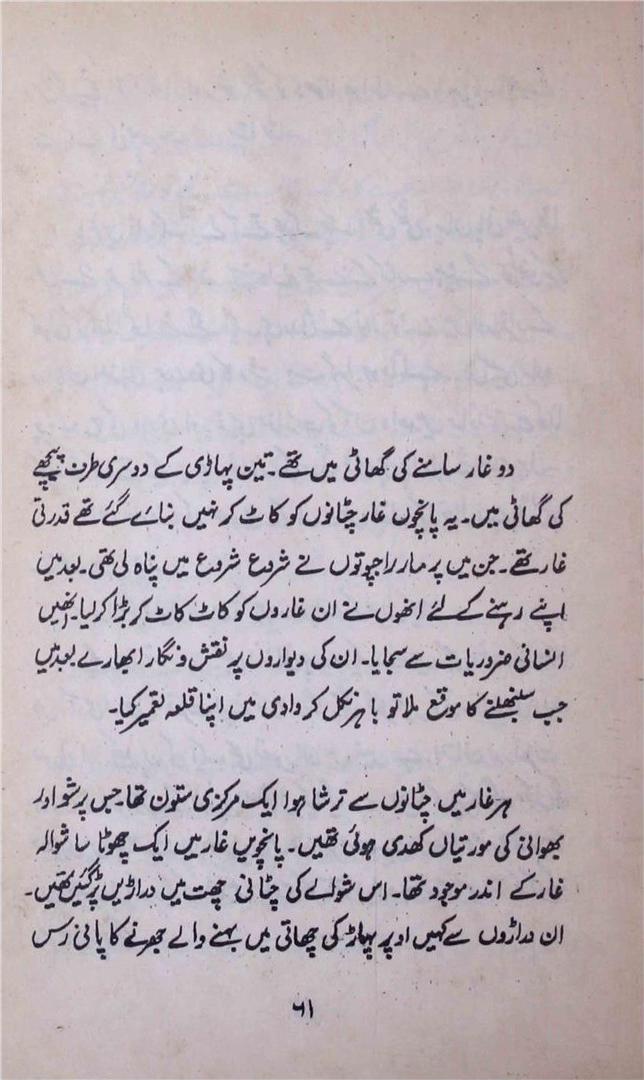 دو غار سامنے کی گھاٹی میں تھے۔ تین پہاڑی کے دوسری طرف پیچھے
کی گھاٹی میں۔ یہ پانچوں غار چٹانوں کو کاٹ کر نہیں بنائے گئے تھے قدرتی
غار تھے۔ جن میں پرمار راجپوتوں نے شروع شروع میں پناہ لی تھی۔ بعد میں
اپنے رہنے کے لئے انھوں نے ان غاروں کو کاٹ کاٹ کر بڑا کر لیا۔ انھیں
انسانی ضروریات سے سجایا۔ ان کی دیواروں پر نقش و نگار ابھارے بعد میں
جب سنبھلنے کا موقع ملا تو باہر نکل کر وادی میں اپنا قلعہ تعمیر کیا۔
ہر غار میں چٹانوں سے ترشا ہوا ایک مرکزی ستون تھا جس پر شو اور
بھوانی کی مورتیاں کھدی ہوئی تھیں۔ پانچویں غار میں ایک چھوٹا سا شوالہ
غار کے اندر موجود تھا۔ اس شوالے کی چٹانی چھت میں دراڑیں پڑ گئیں تھیں۔
ان دراڑوں سے کہیں اوپر پہاڑ کی چھاتی میں بہنے والے جھرنے کا پانی رس
۶۱